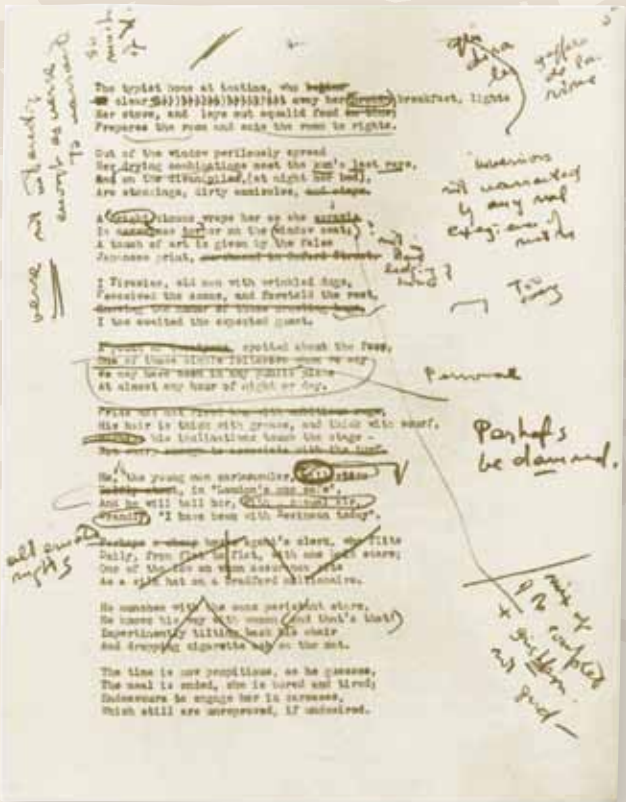 The typist home at teatime, who begins
to clear away her breakfast, lights
Her stove, and lays out squalid food
Prepares the room and sets the room to rights.
Out of the window perilously spread
Her drying combinations meet the sun's last rays,
And on the divan piled, (at night her bed),
Are stockings, dirty camisoles, and stays.
A bright kimono wraps her as she sprawls
In on the window seat;
A touch of art is given by the false
Japanese print, purchased in Oxford Street.
I Tiresias, old man with wrinkled dugs,
Perceived the scene, and foretold the rest,
Knowing the manner of these crawling bugs,
I too awaited the expected guest.
spotted about the face,
One of those simple loiterers whom we say
We may have seen in any public place
At almost any hour of night or day.
Pride has not fired him with ambitious rage,
His hair is thick with grease, and thick with scurf,
his inclinations touch the stage -
Not sharp enough to associate with the turf.
He, the young man carbuncular, will stare
Boldly about, in "London's one cafe",
And he will tell her, with a casual air,
Grandly, "I have been with Nevinson today".
Perhaps a cheap house agent's clerk, who flits
Daily, from flat to flat, with one bold stare;
One of the low on whom assurance sits
As a silk hat on a Bradford millionaire.
He munches with the same persistent stare,
He knows his way with women (and that's that!)
Impertinently tilting back his chair
And dropping cigarette ash on the mat.
The time is now propitious, as he guesses,
The meal is ended, she is bored and tired;
Endeavours to engage her in caresses,
Which still are unreproved, if undesired.
verse not interesting
enough as verse
to warrant
so much
of it.
inversions
not warranted
by any real
exigence of
metre
Too
easy
Personal
Perhaps
be damned.
mix up
of couplet
+
not good —